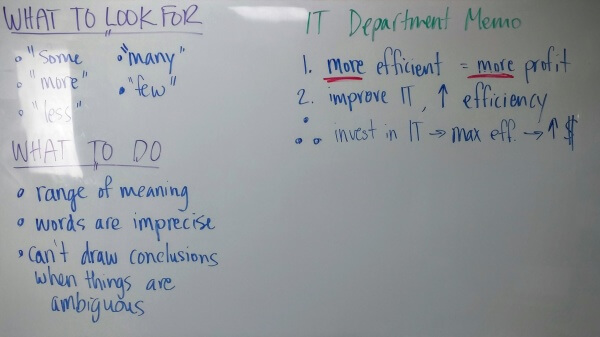 WHAT TO LOOK FOR
• "some
• "many"
• "more"
• "few"
• "less"
WHAT TO DO
• range of meaning
• words are imprecise
• can't draw conclusions
when things are
ambiguous
IT Department Memo
1. more efficient = more profit
2. improve IT, ↑ efficiency
∴ invest in IT → max eff. → ↑ $